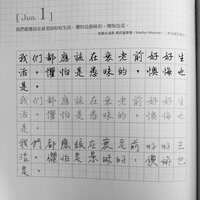 [ Jun. 1 ]
我們都應該在衰老前好好生活，懼怕是愚昧的，懊悔也是。
我們都應該在衰老前好好生
活，懼怕是愚昧的，懊悔也
是。
我們都應該在衰老前好好生
活，懼怕是愚昧的，懊悔也
是。